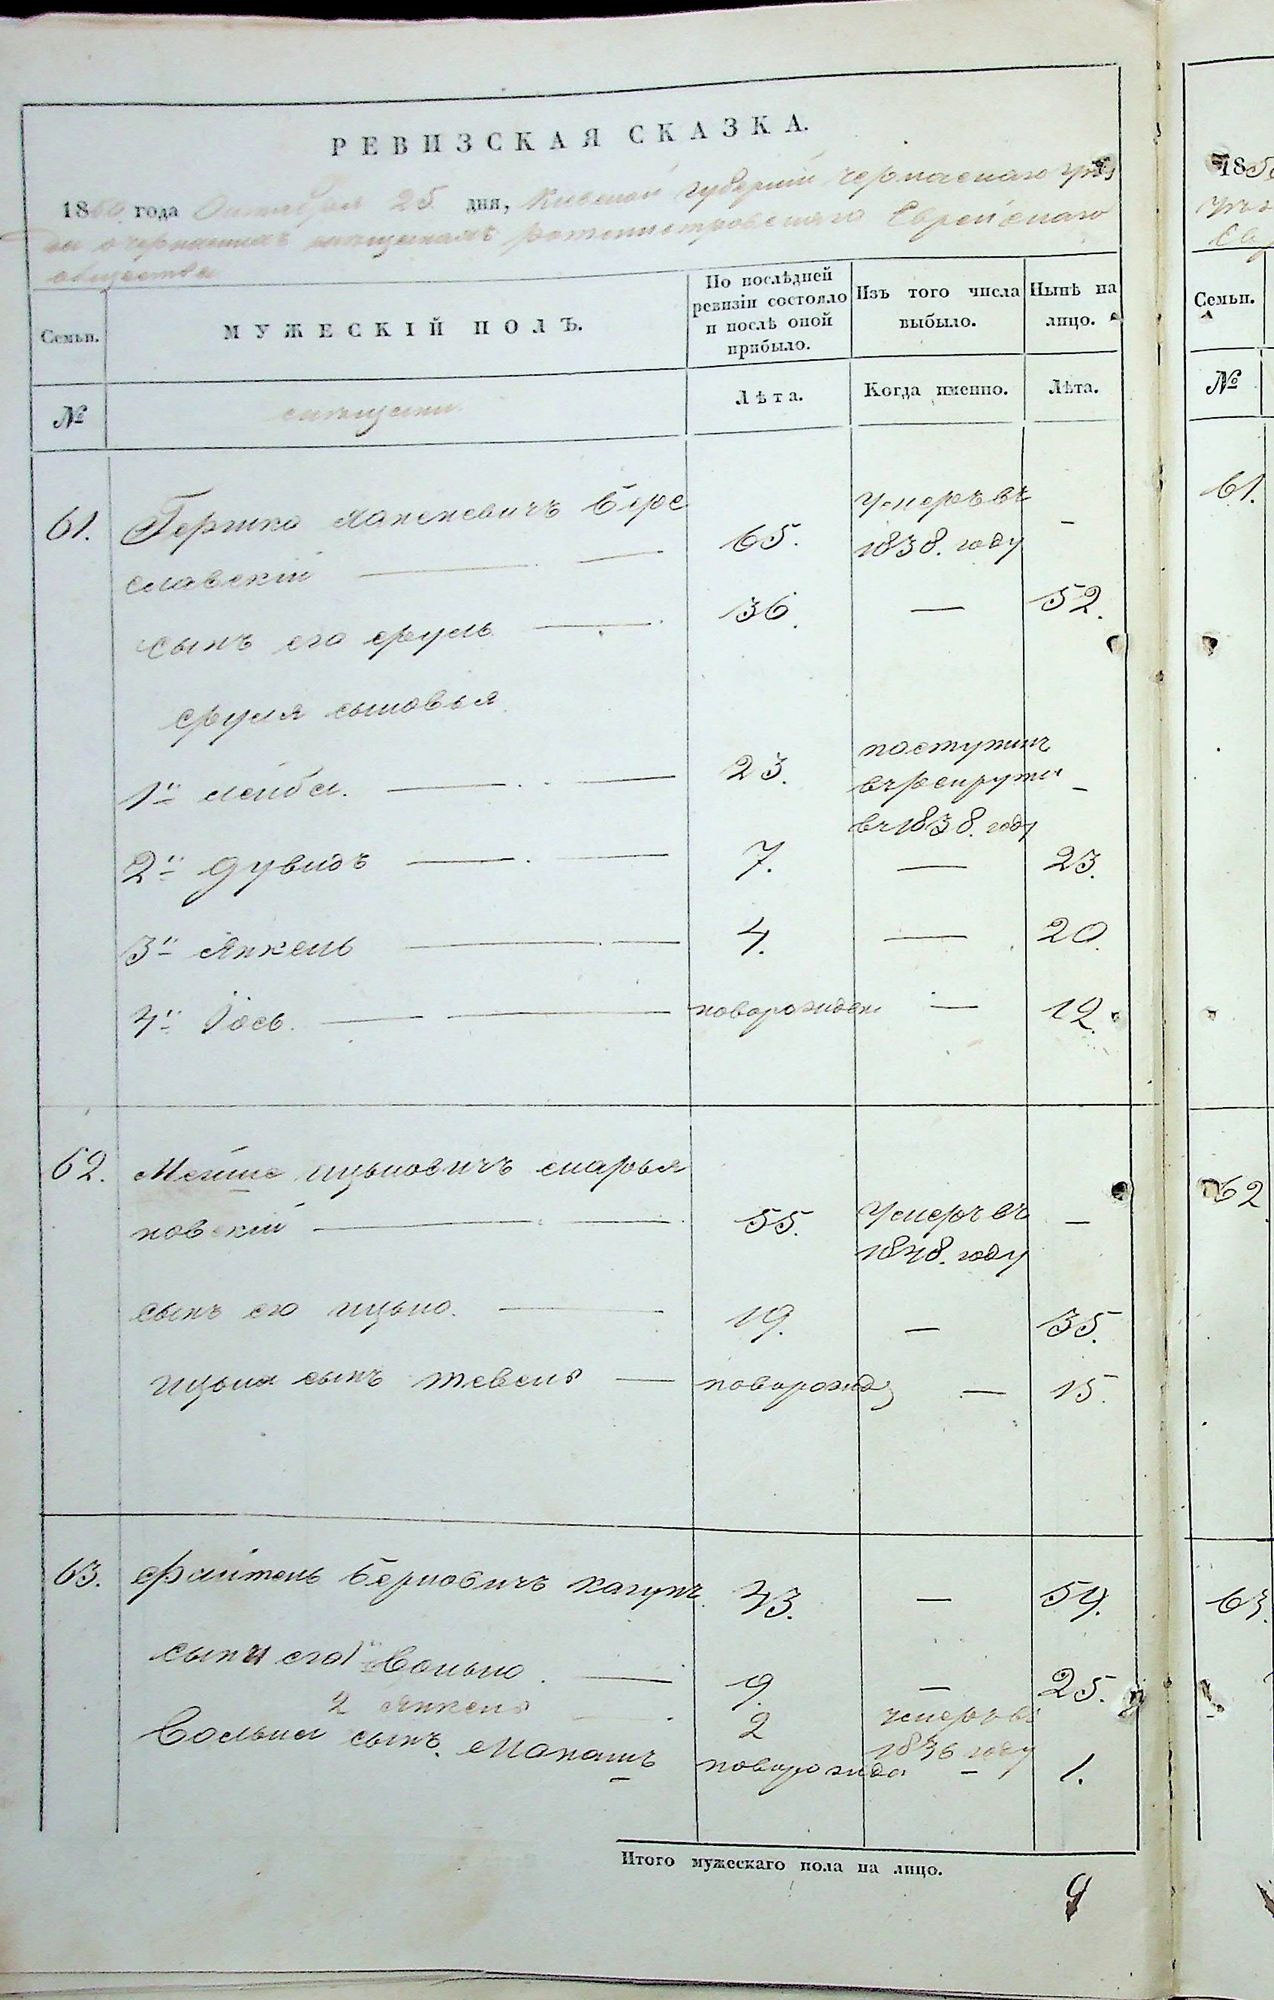 РЕВИЗСКАЯ СКАЗКА.
1850 года Октября 25 дня, Киевской губернии Черкаскаго уѣз
да о мѣщанахъ Ротмистровскаго Еврейскаго
общества
Семьи.
МУЖЕСКІЙ ПОЛЪ.
По послѣдней
ревизіи состояло
и послѣ оной
прибыло.
Изъ того числа
выбыло.
Нынѣ на
лицо.
№
мѣщане
Лѣта.
Когда именно.
Лѣта.
61. Гершко Бере
славскій 65. умеръ въ 1838. году –
сынъ его Сруль 36. — 52.
Сруля сыновья
1й Лейба. 23. поступилъ
въ рекруты –
въ 1838. году
2й Дувидъ 7. — 23.
3й Янкель 4. — 20.
4й Іось. новорожден — 12.
62. Мойше Ицьковичъ
новскій 55. умеръ въ –
1848. году
сынъ его Ицько. 19. — 35.
Ицька сынъ Тевель новорожд — 15.
63. Файтель Берковичъ Кагунъ. 43. — 59.
сыны его 1й Волько 9. — 25.
2 Янкель 2 умеръ въ
1836 году
Волька сынъ Манашъ новорожд — 1.
Итого мужескаго пола на лицо.
9
1850
Семьи.
№
61.
62
63.